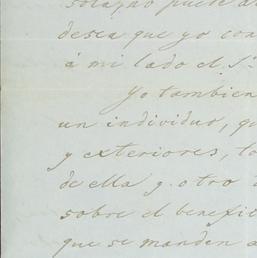 sola, no puede
desea que yo con
á mi lado el Sr.
Yo tambien
un individuo, qu
y exteriores, to
de ella y otro
sobre el benefic
que se manden a